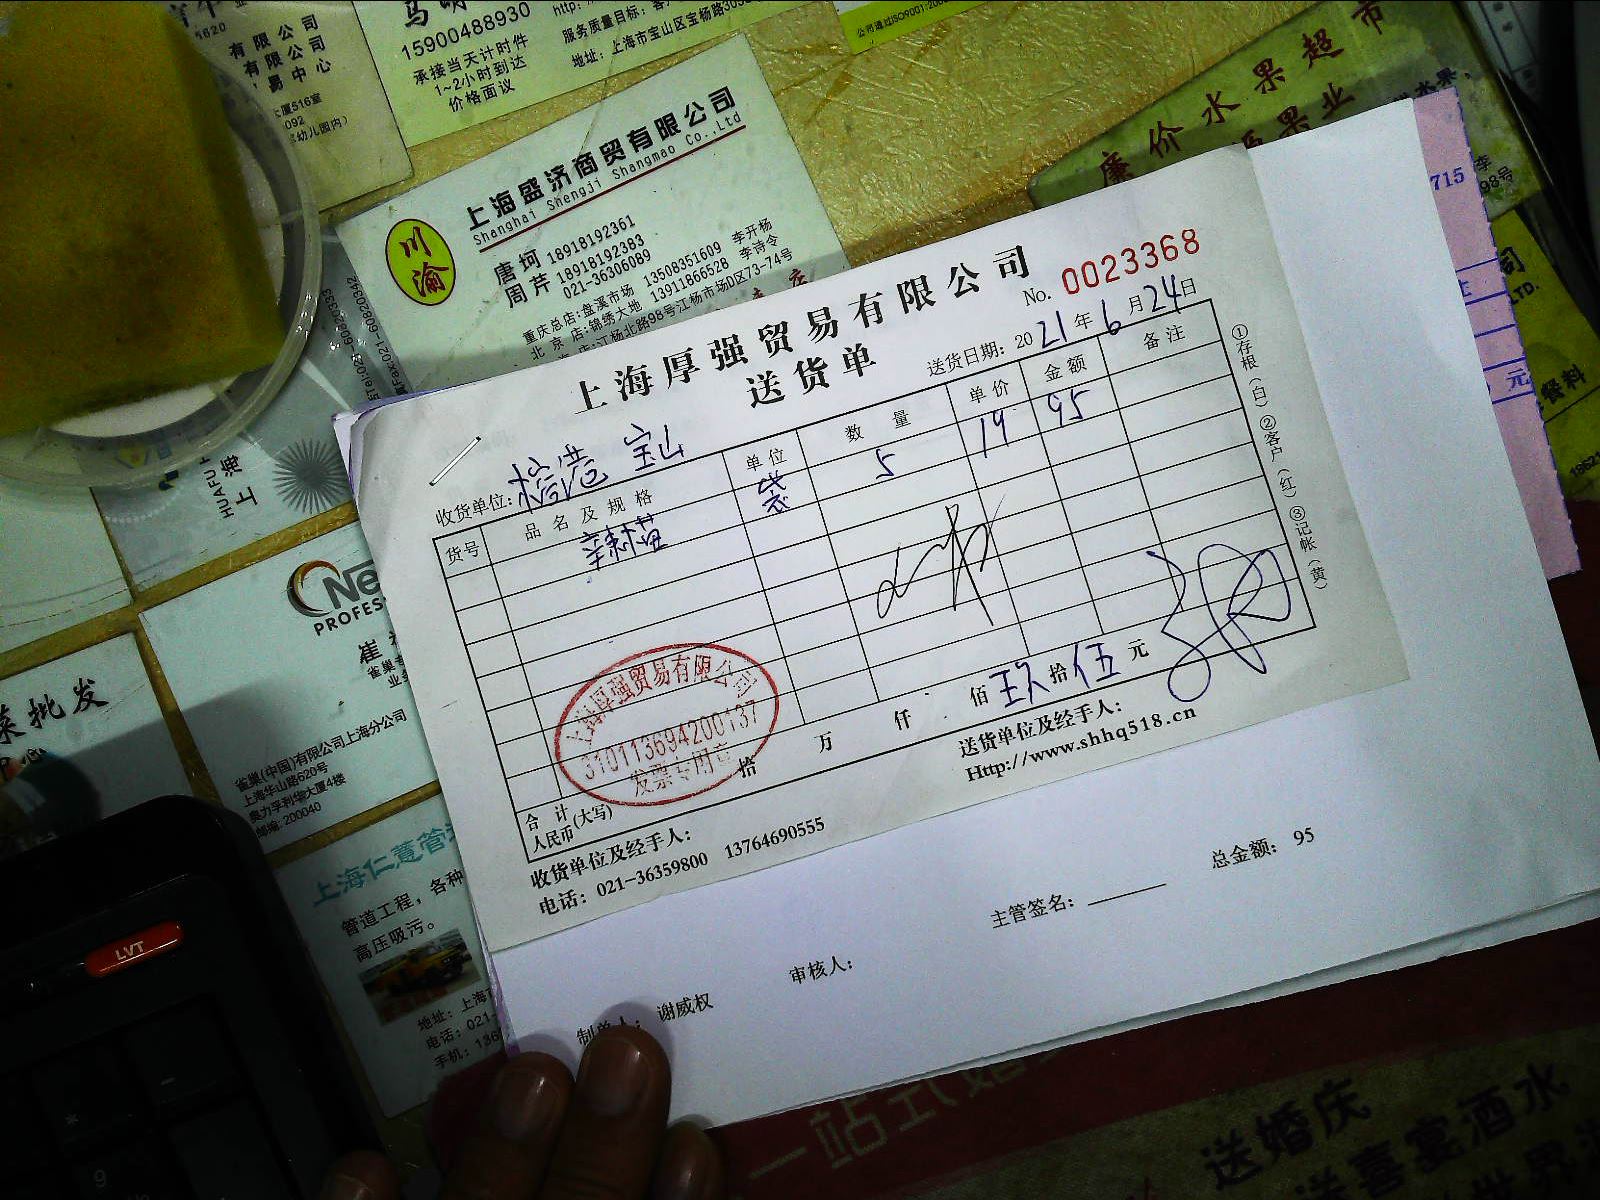 15900488930
承接当天计时件
1~2小时到达
价格面议
服务质量目标:
地址: 上海市宝山区宝杨路
有限公司
有限公司
易中心
厦516室
幼儿园内)
廉价水果超市
果业
上海盛济商贸有限公司
Shanghai Shengji Shangmao Co.,Ltd
川渝
唐坷 18918192361
周芹 18918192383
021-36306089
重庆总店:盘溪市场 13508351609 李开杨
北京店:锦绣大地 13911866528 李诗令
店:江杨北路98号江杨市场D区73-74号
上海厚强贸易有限公司
送货单
No. 0023368
送货日期: 2021年6月24日
收货单位: 宝山
货号 品名及规格 单位 数量 单价 金额 备注
袋 5 19 95
①存根(白)②客户(红)③记帐(黄)
上海厚强贸易有限公司
310113694200137
发票专用章
合计
人民币(大写) 拾 万 仟 佰 玖拾伍元
收货单位及经手人:
送货单位及经手人:
电话: 021-36359800 13764690555
Http://www.shhq518.cn
总金额: 95
主管签名:
审核人:
制单人: 谢威权
715
元
上海
PROFES
崔
雀巢(中国)有限公司上海分公司
上海华山路620号
奥力孚利华大厦4楼
邮编: 200040
菜批发
上海仁薏管
管道工程,各种
高压吸污。
地址: 上海市
电话: 021-
手机: 136
LVT
一站式婚
送婚庆
送喜宴酒水